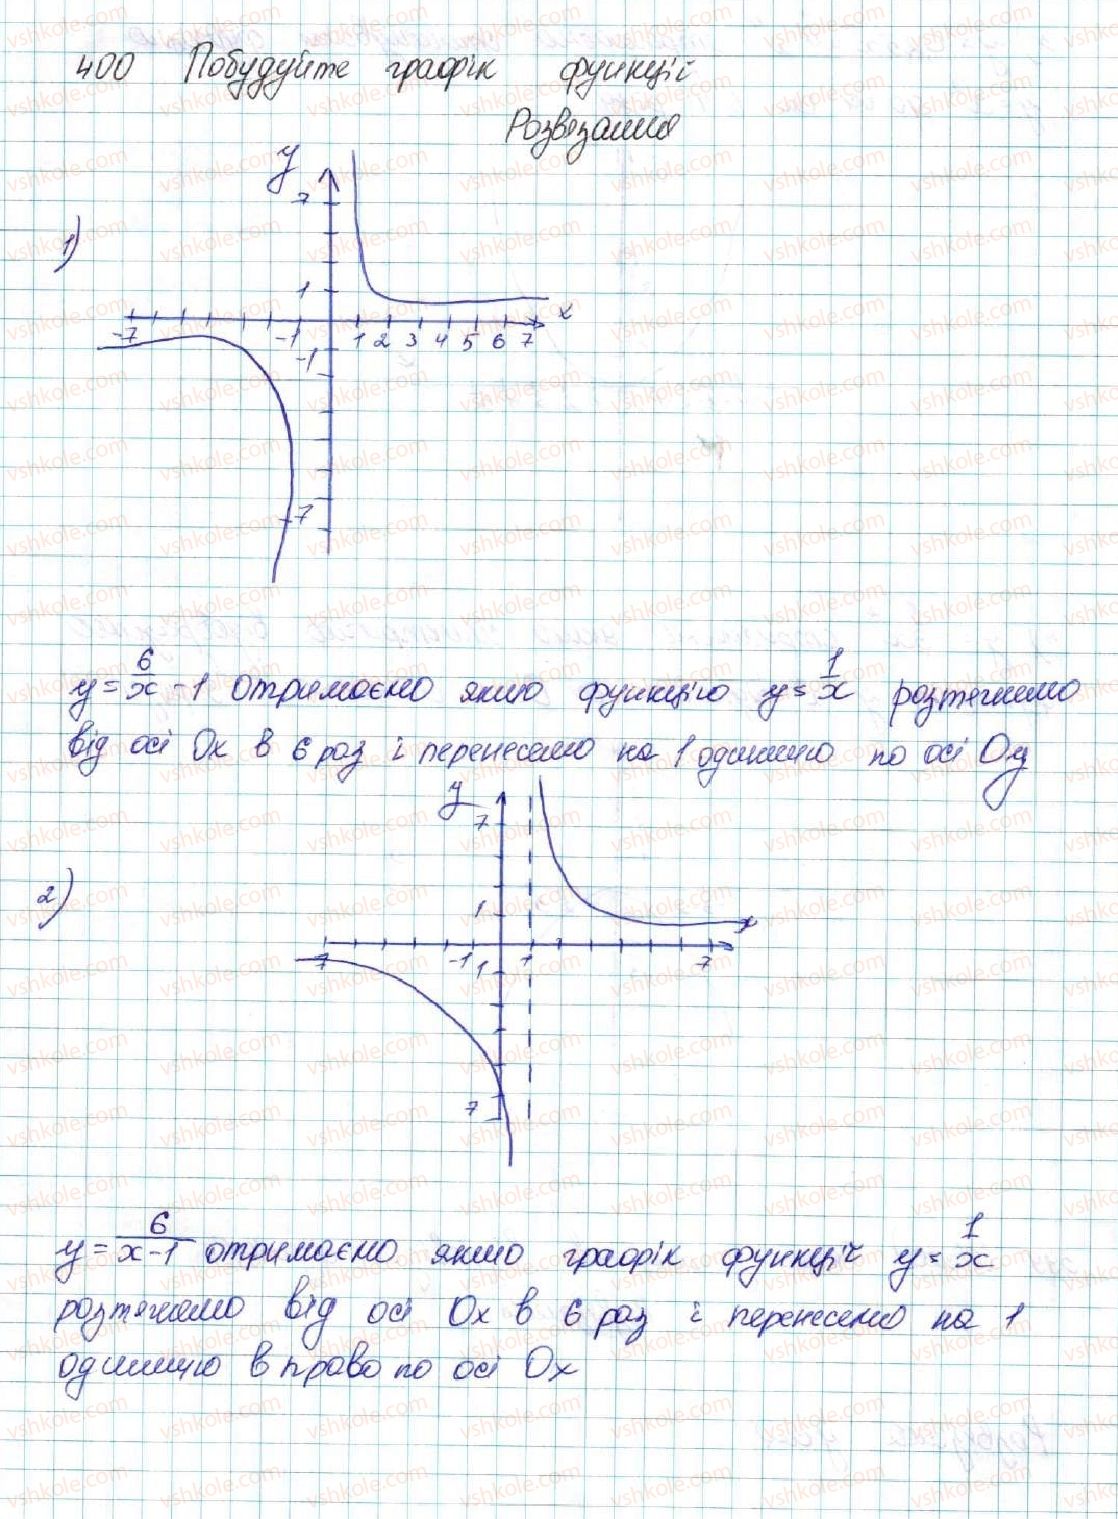 400 Побудуйте графік функцій
Розвязання
1)
y
7
1
x
-7 -1 1 2 3 4 5 6 7
-1
-7
y = 6/x - 1 отримаємо якшо функцію y = 1/x розтягнемо
від осі Ox в 6 раз і перенесемо на 1 одиницю по осі Oy
2)
y
7
1
x
-7 -1 1 7
1
7
y = 6/(x-1) отримаємо якшо графік функції y = 1/x
розтягнемо від осі Ox в 6 раз і перенесемо на 1
одиницю вправо по осі Ox
vshkole.com